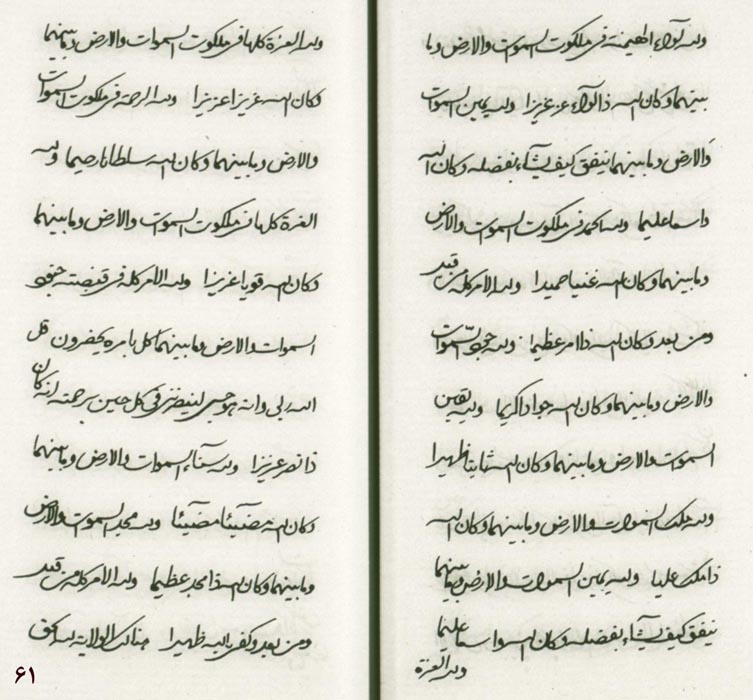 ولله لواء الهيمنة فى ملكوت السموات والارض وما
بينهما وكان الله ذا لواء عز عزيزا ولله يمين السموات
والارض وما بينهما ينفق كيف يشاء بفضله وكان الله
واسعا عليما ولله الحمد فى ملكوت السموات والارض
وما بينهما وكان الله غنيا حميدا ولله الامر كله من قبل
ومن بعد وكان الله ذا امر عظيما ولله جود السموات
والارض وما بينهما وكان الله جوادا كريما ولله يقين
السموات والارض وما بينهما وكان الله ظهيرا
ولله ملك السموات والارض وما بينهما وكان الله
ذا ملك عليا ولله يمين السموات والارض وما بينهما
ينفق كيف يشاء بفضله وكان الله واسعا عليما
ولله العزة
ولله العزة كلها فى ملكوت السموات والارض وما بينهما
وكان الله عزيزا عزيزا ولله الرحمة فى ملكوت السموات
والارض وما بينهما وكان الله سلطانا رحيما ولله
العزة كلها فى ملكوت السموات والارض وما بينهما
وكان الله قويا عزيزا ولله الامر كله فى قبضته
السموات والارض وما بينهما كل بامره يحضرون قل
الله لى وانه هو حسبى لينصرنى فى كل حين برحمته انه كان
ذا نصر عزيزا ولله سناء السموات والارض وما بينهما
وكان الله مضيئا مضيئا ولله مجد السموات والارض
وما بينهما وكان الله ذا مجد عظيما ولله الامر كله من قبل
ومن بعد وكفى بالله ظهيرا هنالك الولاية لله الحق
٦١